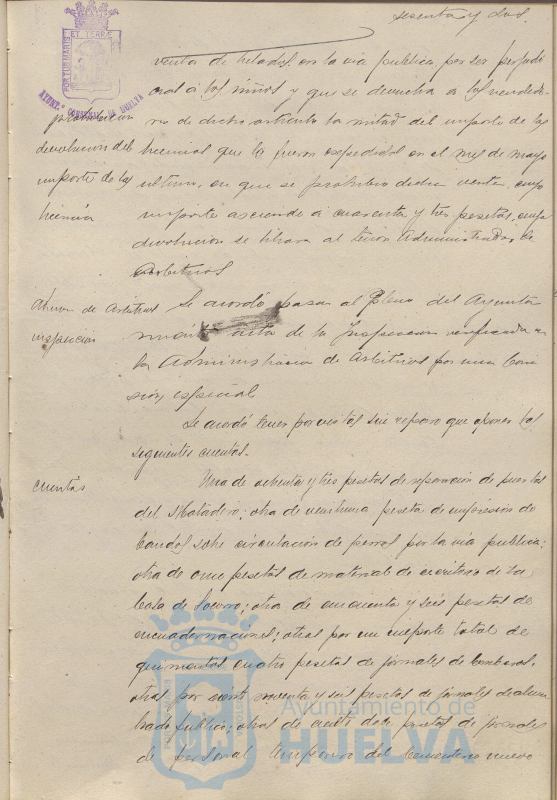 sesenta y dos
PORTUS MARIS ET TERRÆ
AYUNT. CONSTNAL. DE HUELVA
venta de helados en la via publica, por ser perjudi
cial á los niños y que se devuelva á los vendedo
res de dicho articulo la mitad del importe de las
licencias que le fueron expedidas en el mes de mayo
ultimo, en que se prohibio dicha venta, cuyo
importe asciende á cuarenta y tres pesetas, cuya
devolucion se librara al señor Administrador de
Arbitrios
devolucion del
importe de las
licencia
Admon de Arbitrios
inspeccion
Se acordó pasar al Pleno del Ayunta
miento acta de la Inspeccion verificada en
la Administracion de Arbitrios por una Comi
sion especial
Se acordó tener por vistas sin reparo que oponer las
siguientes cuentas.
cuentas
Una de ochenta y tres pesetas de reparacion de puertas
del Matadero; otra de veintiuna peseta de impresion de
bandos sobre circulacion de perros por la via publica;
otra de once pesetas de material de escritorio de la
Casa de Socorro; otra de cincuenta y seis pesetas de
encuadernaciones; otras por un importe total de
quinientas cuatro pesetas de jornales de bomberos,
otras por cient noventa y seis pesetas de jornales de alum
brado publico; otras de ciento doce pesetas de jornales
de personal temporero del Cementerio nuevo
Ayuntamiento de
HUELVA